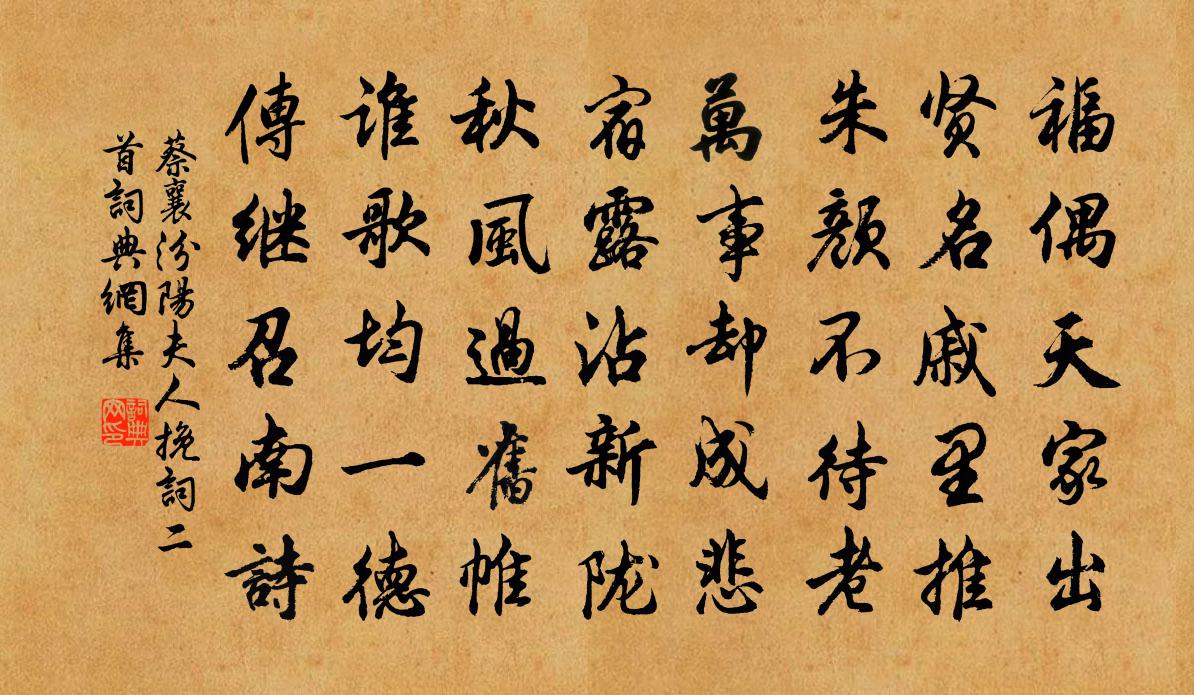 福偶天家出
贤名戚里推
朱顔不待老
萬事却成悲
宿露沾新陇
秋風過舊帷
谁歌均一德
傳继召南詩
蔡襄汾陽夫人挽詞二
首詞典網集
詞典
网印